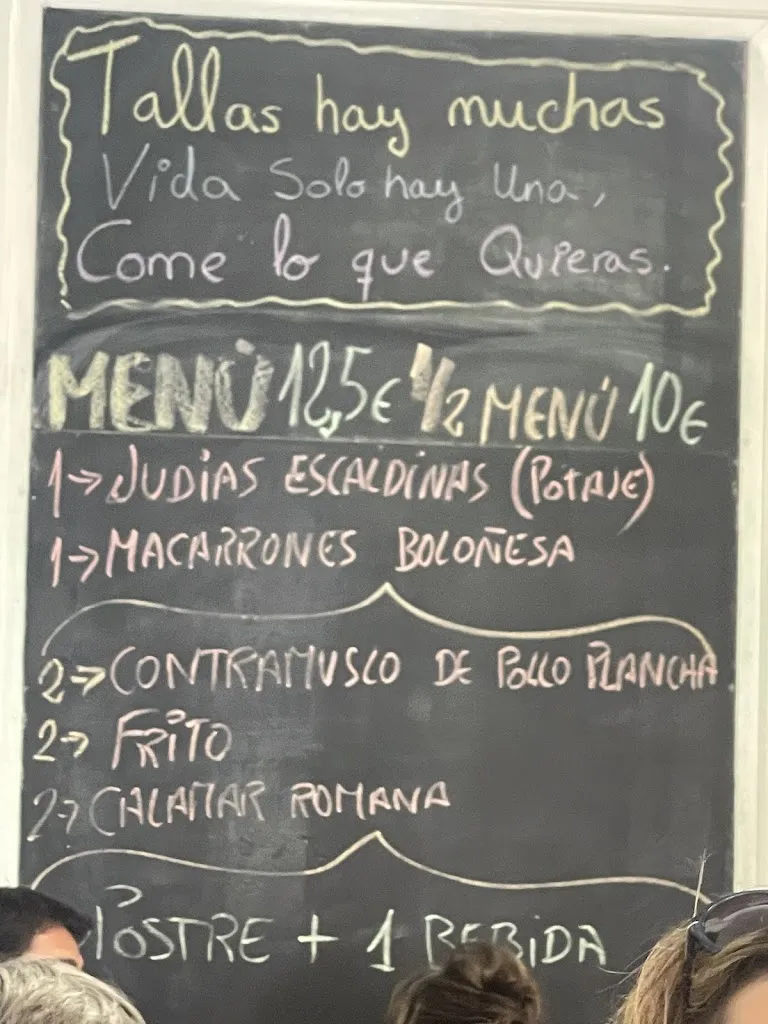 Tallas hay muchas
Vida Solo hay Una,
Come lo que Quieras.
MENÚ 12,5€ 1/2 MENÚ 10€
1→JUDÍAS ESCALDINAS (POTAJE)
1→MACARRONES BOLOÑESA
2→CONTRAMUSLO DE POLLO PLANCHA
2→ FRITO
2→CALAMAR ROMANA
POSTRE + 1 BEBIDA